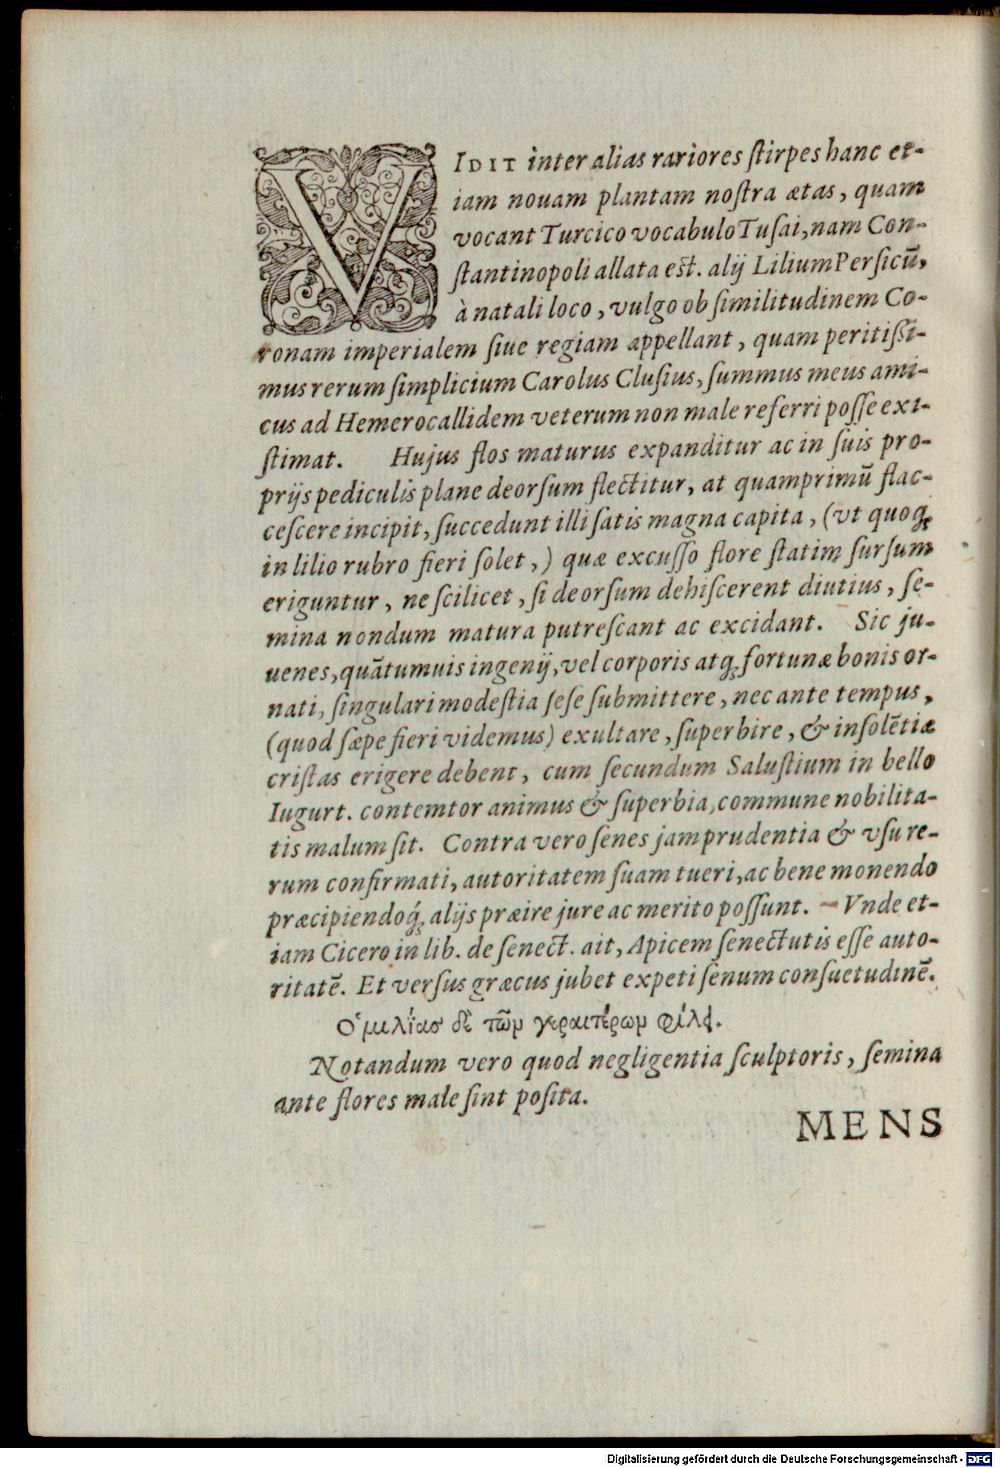 VIDIT inter alias rariores stirpes hanc et-
iam nouam plantam nostra ætas, quam
vocant Turcico vocabulo Tusai, nam Con-
stantinopoli allata est. alij Lilium Persicū,
à natali loco, vulgo ob similitudinem Co-
ronam imperialem siue regiam appellant, quam peritissi-
mus rerum simplicium Carolus Clusius, summus meus ami-
cus ad Hemerocallidem veterum non male referri posse exi-
stimat. Hujus flos maturus expanditur ac in suis pro-
prijs pediculis plane deorsum flectitur, at quamprimū flac-
cescere incipit, succedunt illi satis magna capita, (vt quoq;
in lilio rubro fieri solet,) quæ excusso flore statim sursum
eriguntur, ne scilicet, si deorsum dehiscerent diutius, se-
mina nondum matura putrescant ac excidant. Sic ju-
uenes, quātumuis ingenij, vel corporis atq; fortunæ bonis or-
nati, singulari modestia sese submittere, nec ante tempus,
(quod sæpe fieri videmus) exultare, superbire, & insolētiæ
cristas erigere debent, cum secundum Salustium in bello
Iugurt. contemtor animus & superbia, commune nobilita-
tis malum sit. Contra vero senes jam prudentia & vsu re-
rum confirmati, autoritatem suam tueri, ac bene monendo
præcipiendoq́; alijs præire jure ac merito possunt. Vnde et-
iam Cicero in lib. de senect. ait, Apicem senectutis esse auto-
ritatē. Et versus græcus jubet expeti senum consuetudinē.
Ὁμιλίας δὲ τῶν γεραιτέρων φίλει.
Notandum vero quod negligentia sculptoris, semina
ante flores male sint posita.
MENS
Digitalisierung gefördert durch die Deutsche Forschungsgemeinschaft - DFG